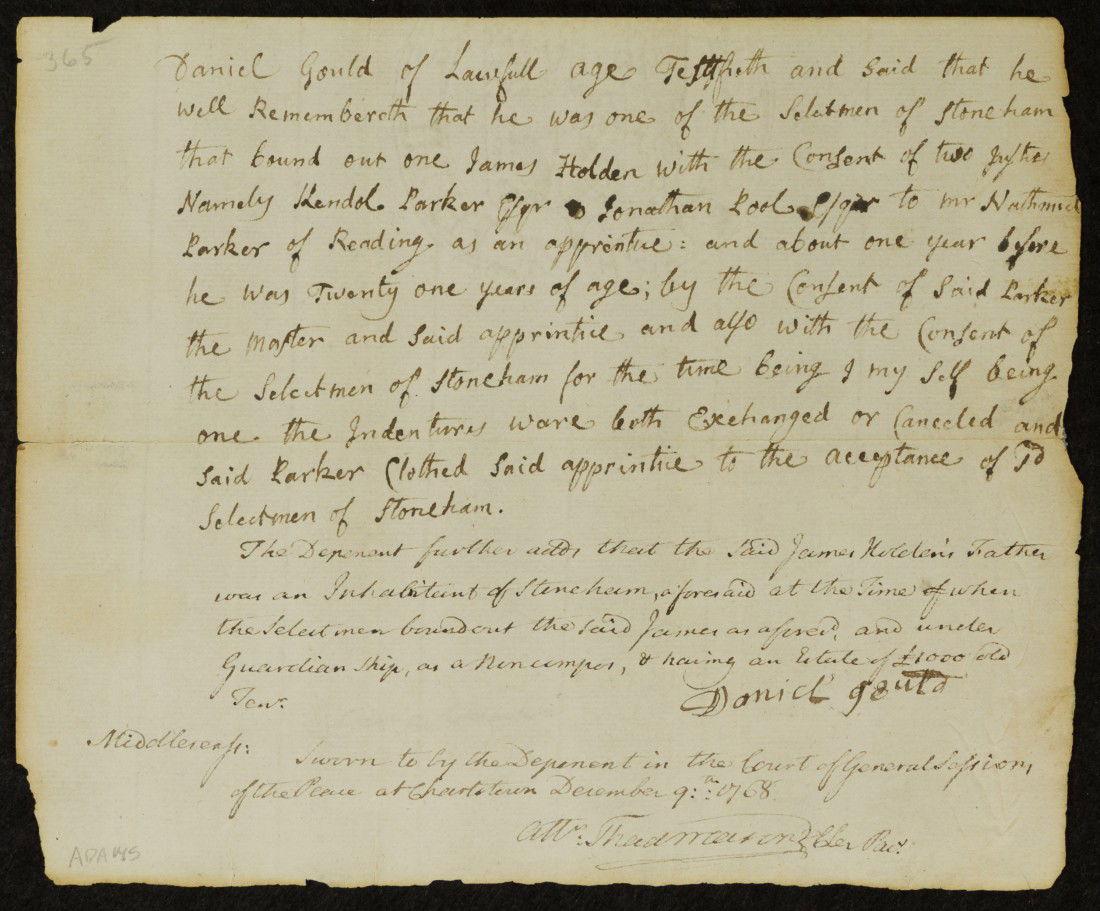 365
Daniel Gould of Lawfull age Testifieth and Said that he
well Remembereth that he was one of the Selectmen of Stoneham
that bound out one James Holden with the Consent of two Justies
Namely Kendol Parker Esqr & Jonathan Pool Esqr to mr Nathaniel
Parker of Reading as an apprintice: and about one year before
he was Twenty one years of age; by the Consent of Said Parker
the Master and Said apprintice and also with the Consent of
the Selectmen of Stoneham for the time being I my Self being
one the Indentures ware both Exchanged or Canceled and
Said Parker Clothed Said apprintice to the acceptance of Sd
Selectmen of Stoneham.
The Deponent further adds that the Said James Holden's Father
was an Inhabitant of Stoneham, aforesaid at the Time of when
the Selectmen bound out the said James as afores'd, and under
Guardian Ship, as a Noncompos, & having an Estate of £1000 old
Tenr.
Daniel gould
Middlesex ss:
Sworn to by the Deponent in the Court of General Sessions
of the Peace at Charlestown December 9.th 1768
Attr. Thad Mason Cler Pac.
ADAMS